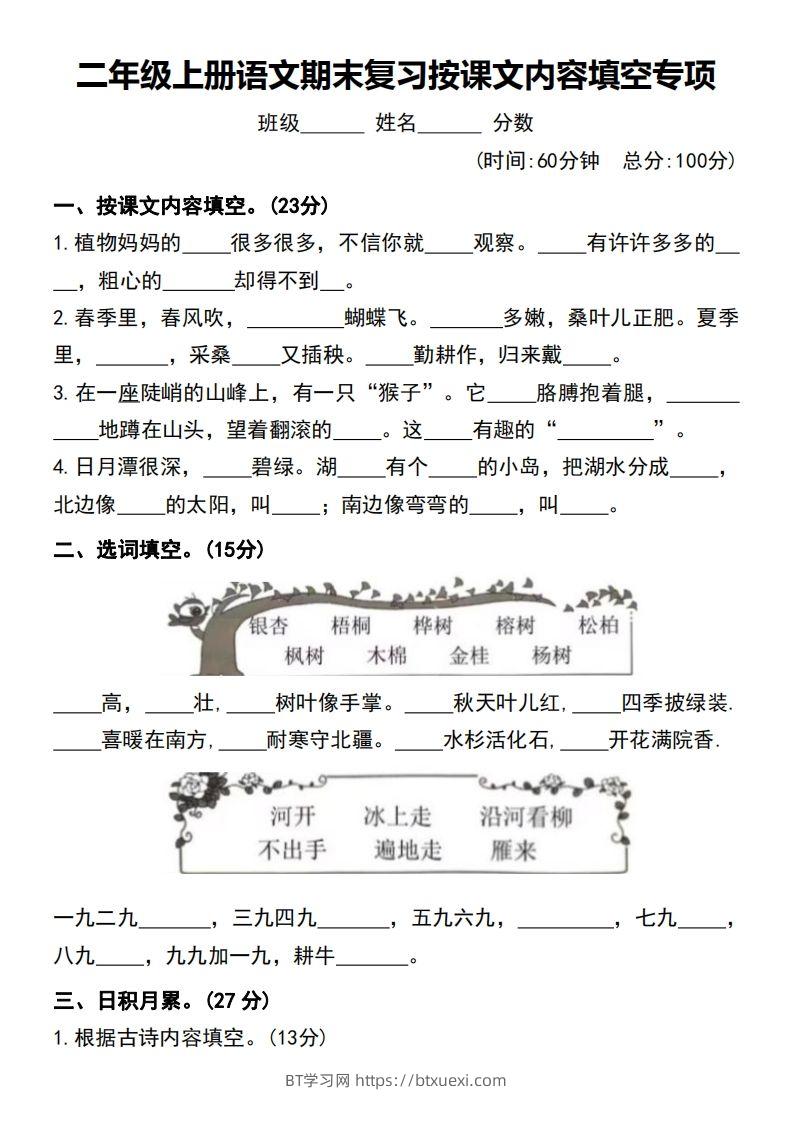 二年级上册语文期末复习按课文内容填空专项
班级______ 姓名______ 分数
(时间:60分钟 总分:100分)
一、按课文内容填空。(23分)
1.植物妈妈的____很多很多，不信你就____观察。____有许许多多的__
__，粗心的______却得不到__。
2.春季里，春风吹，________蝴蝶飞。______多嫩，桑叶儿正肥。夏季
里，______，采桑____又插秧。____勤耕作，归来戴____。
3.在一座陡峭的山峰上，有一只“猴子”。它____胳膊抱着腿，______
____地蹲在山头，望着翻滚的____。这____有趣的“________”。
4.日月潭很深，____碧绿。湖____有个____的小岛，把湖水分成____，
北边像____的太阳，叫____；南边像弯弯的____，叫____。
二、选词填空。(15分)
银杏 梧桐 桦树 榕树 松柏
枫树 木棉 金桂 杨树
____高，____壮,____树叶像手掌。____秋天叶儿红,____四季披绿装.
____喜暖在南方,____耐寒守北疆。____水杉活化石,____开花满院香.
河开 冰上走 沿河看柳
不出手 遍地走 雁来
一九二九______，三九四九______，五九六九，________，七九____，
八九____，九九加一九，耕牛______。
三、日积月累。(27 分)
1.根据古诗内容填空。(13分)
BT学习网 https://btxuexi.com